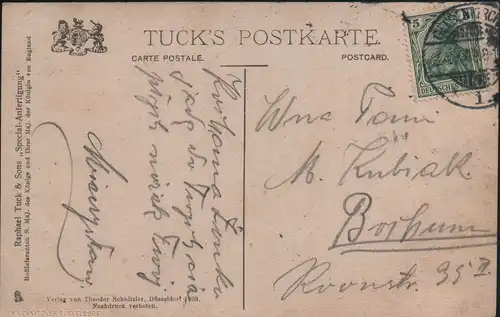 TUCK'S POSTKARTE.
CARTE POSTALE.
POSTCARD.
Raphael Tuck & Sons „Special-Anfertigung"
Hoflieferanten S. Maj. des Königs und Ihrer Maj. der Königin von England
Kochana Żonko
siadę do
Twój
Mieczysław
Wna Pani
M. Kubiak
Bochum
Roonstr. 35 II
5
DEUTSCHES
1
Verlag von Theodor Schnitzler, Düsseldorf 1909.
Nachdruck verboten.